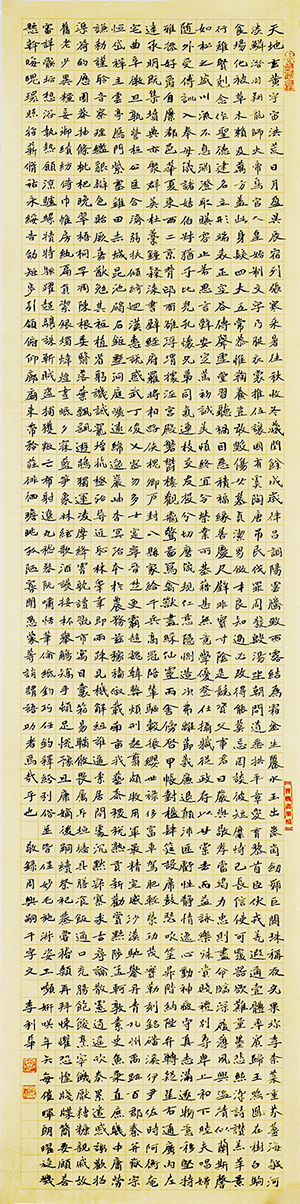 天地玄黃宇宙洪荒日月盈昃辰宿列張寒來暑往秋收冬藏閏餘成歲律呂調陽雲騰致雨露結為霜金生麗水玉出崑岡劍號巨闕珠稱夜光果珍李柰菜重芥薑海鹹河
淡鱗潛羽翔龍師火帝鳥官人皇始制文字乃服衣裳推位讓國有虞陶唐弔民伐罪周發殷湯坐朝問道垂拱平章愛育黎首臣伏戎羌遐邇壹體率賓歸王鳴鳳在樹白駒
食場化被草木賴及萬方蓋此身髮四大五常恭惟鞠養豈敢毀傷女慕貞潔男效才良知過必改得能莫忘罔談彼短靡恃己長信使可覆器欲難量墨悲絲染詩讚羔羊景
行維賢剋念作聖德建名立形端表正空谷傳聲虛堂習聽禍因惡積福緣善慶尺璧非寶寸陰是競資父事君曰嚴與敬孝當竭力忠則盡命臨深履薄夙興溫凊似蘭斯馨
如松之盛川流不息淵澄取映容止若思言辭安定篤初誠美慎終宜令榮業所基籍甚無竟學優登仕攝職從政存以甘棠去而益詠樂殊貴賤禮別尊卑上和下睦夫唱婦
隨外受傅訓入奉母儀諸姑伯叔猶子比兒孔懷兄弟同氣連枝交友投分切磨箴規仁慈隱惻造次弗離節義廉退顛沛匪虧性靜情逸心動神疲守真志滿逐物意移堅持
雅操好爵自縻都邑華夏東西二京背邙面洛浮渭據涇宮殿盤鬱樓觀飛驚圖寫禽獸畫彩仙靈丙舍傍啟甲帳對楹肆筵設席鼓瑟吹笙升階納陛弁轉疑星右通廣內左
達承明既集墳典亦聚群英杜稿鍾隸漆書壁經府羅將相路俠槐卿戶封八縣家給千兵高冠陪輦驅轂振纓世祿侈富車駕肥輕策功茂實勒碑刻銘磻溪伊尹佐時阿衡奄宅
曲阜微旦孰營桓公匡合濟弱扶傾綺迴漢惠說感武丁俊乂密勿多士寔寧晉楚更霸趙魏困橫假途滅虢踐土會盟何遵約法韓弊煩刑起翦頗牧用軍最精宣威沙漠馳譽丹青九州禹跡百郡秦并嶽宗
恆岱禪主云亭雁門紫塞雞田赤城昆池碣石鉅野洞庭曠遠綿邈巖岫杳冥治本於農務茲稼穡俶載南畝我藝黍稷稅熟貢新勸賞黜陟孟軻敦素史魚秉直庶幾中庸勞
謙謹敕聆音察理鑒貌辨色貽厥嘉猷勉其祗植省躬譏誡寵增抗極殆辱近恥林皋幸即兩疏見機解組誰逼索居閒處沉默寂寥求古尋論散慮逍遙欣奏累遣慼謝歡招
渠荷的歷園莽抽條枇杷晚翠梧桐早凋陳根委翳落葉飄颻遊鵾獨運凌摩絳霄耽讀翫市寓目囊箱易輶攸畏屬耳垣牆具膳餐飯適口充腸飽飫烹宰飢厭糟糠親戚故
舊老少異糧妾御績紡侍巾帷房紈扇圓潔銀燭煒煌晝眠夕寐藍筍象床弦歌酒讌接杯舉觴矯手頓足悅豫且康嫡後嗣續祭祀烝嘗稽顙再拜悚懼恐惶牋牒簡要顧答
審詳骸垢想浴執熱願涼驢騾犢特駭躍超驤誅斬賊盜捕獲叛亡布射僚丸嵇琴阮嘯恬筆倫紙鈞巧任釣釋紛利俗並皆佳妙毛施淑姿工顰妍笑年矢每催曦暉朗曜璇璣
懸斡晦魄環照指薪修祜永綏吉劭矩步引領俯仰廊廟束帶矜莊徘徊瞻眺孤陋寡聞愚蒙等誚謂語助者焉哉乎也 敬錄周興嗣千字文 李利華